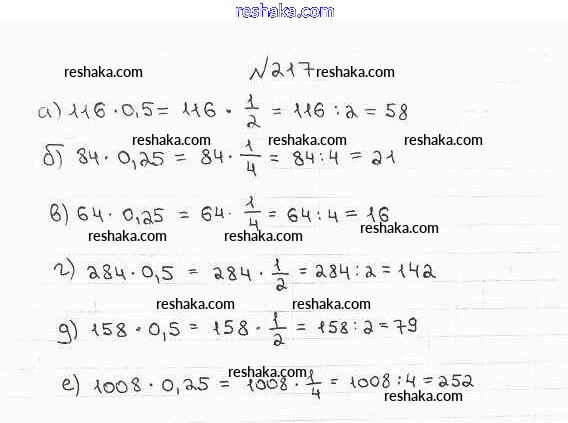 reshaka.com
reshaka.com №217 reshaka.com
а) 116 · 0,5 = 116 · 1/2 = 116 : 2 = 58
reshaka.com reshaka.com reshaka.com
б) 84 · 0,25 = 84 · 1/4 = 84 : 4 = 21
в) 64 · 0,25 = 64 · 1/4 = 64 : 4 = 16
reshaka.com reshaka.com reshaka.com
г) 284 · 0,5 = 284 · 1/2 = 284 : 2 = 142
reshaka.com reshaka.com
д) 158 · 0,5 = 158 · 1/2 = 158 : 2 = 79
reshaka.com
е) 1008 · 0,25 = 1008 · 1/4 = 1008 : 4 = 252
reshaka.com